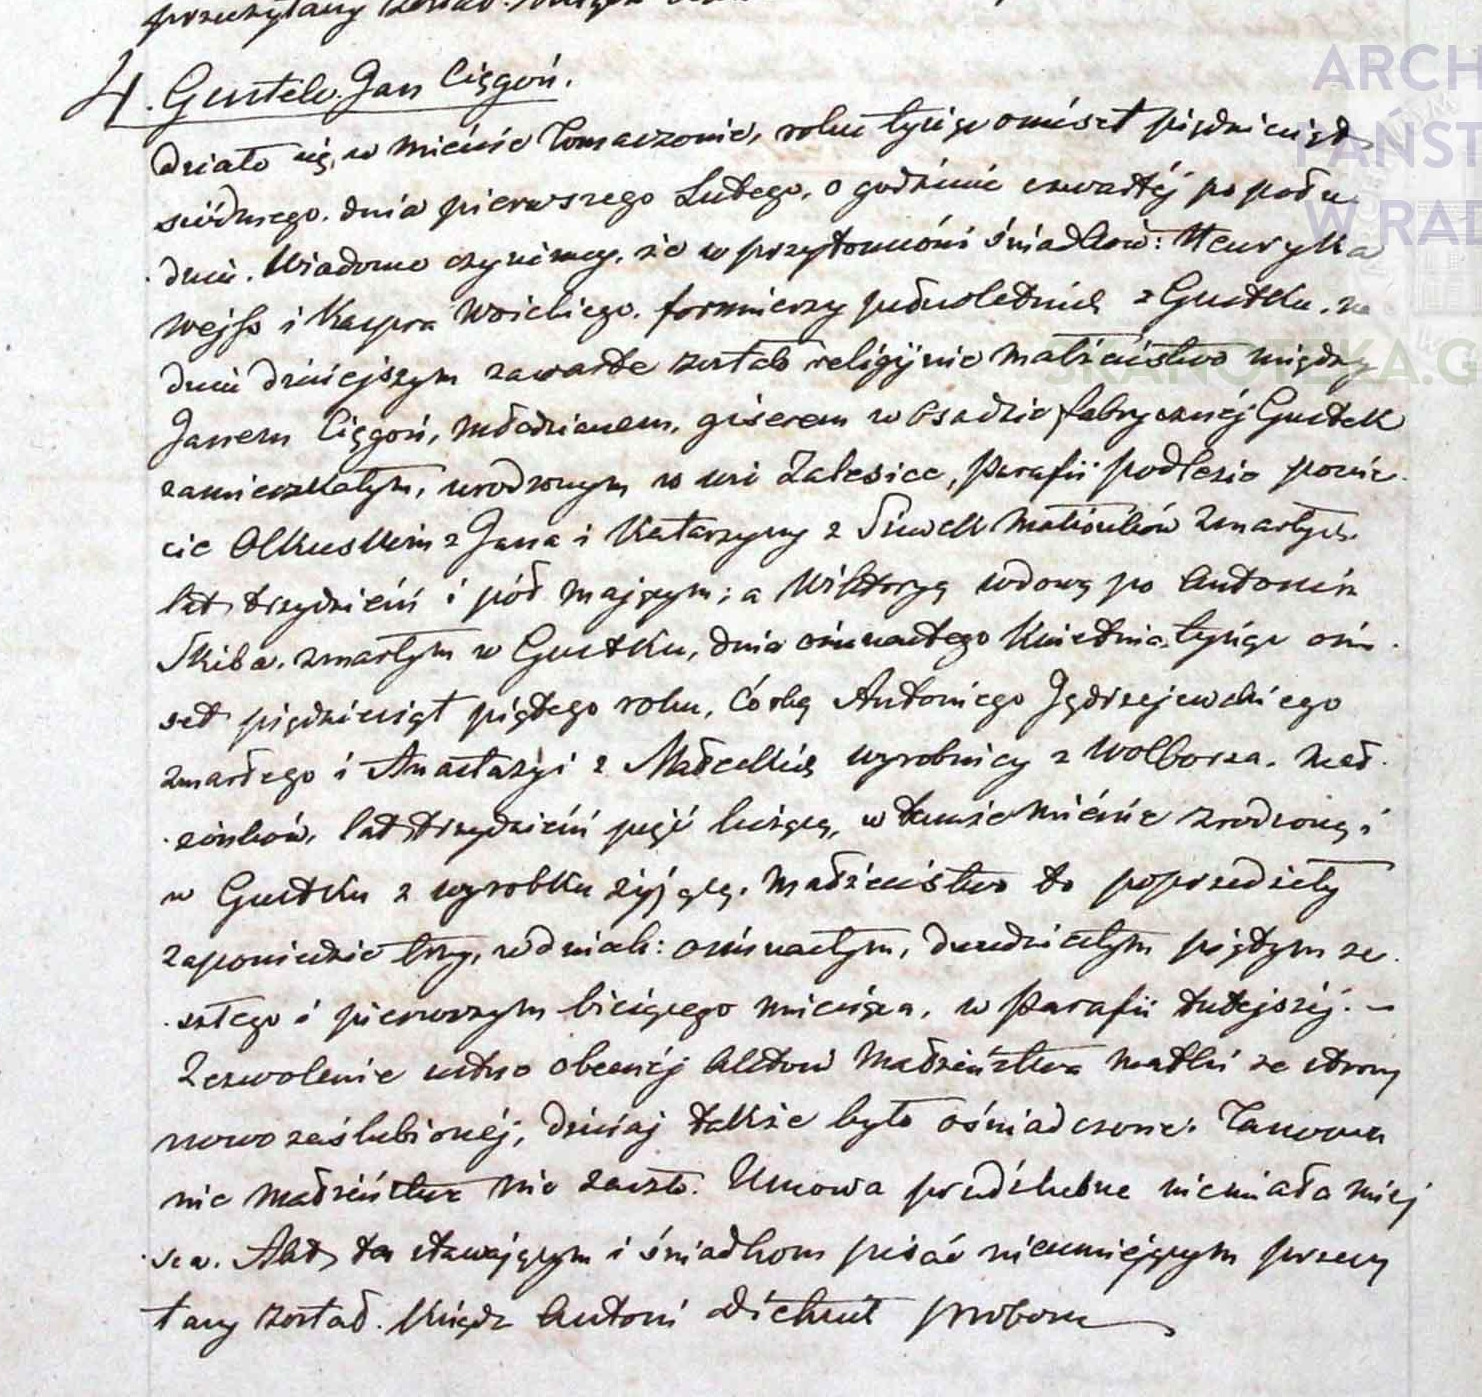 przeczytany został. Ksiądz
4. Gustek. Jan Cięgoń.
Działo się w mieście Tomaszowie, roku tysiąc ośmset pięćdziesiąt
siódmego. dnia pierwszego Lutego, o godzinie czwartéj po połu
dniu. Wiadomo czynimy, że w przytomności świadków: Henryka
Wejss i Kacpra Woickiego. formierzy pełnoletnich z Gustku. na
dniu dzisiejszym zawarte zostało religijnie małżeństwo między
Janem Cięgoń, młodzianem, giserem w Osadzie fabrycznéj Gustek
zamieszkałym, urodzonym w wsi Zalesice, Parafii podlesie powie
cie Olkuskim z Jana i Katarzyny z Siwek małżonków zmarłych.
lat trzydzieści i pół mającym; a Wiktoryą wdową po Antonim
Skiba. zmarłym w Gustku, dnia ośmnastego Kwietnia tysiąc ośm
set pięćdziesiąt piątego roku, Córką Antoniego Jędrzejewskiego
zmarłego i Anastazyi z Małeckich wyrobnicy z Wolborza. mał
żonków, lat trzydzieści pięć liczącą, w temże mieście zrodzoną i
w Gustku z wyrobku żyjącą. Małżeństwo to poprzedziły
zapowiedzie trzy, w dniach: ośmnastym, dwudziestym piątym ze
szłego i pierwszym bieżącego miesiąca, w Parafii tutejszéj. –
Zezwolenie ustne obecnéj Aktowi Małżeństwa matki ze strony
nowo zaślubionéj, dzisiaj także było oświadczone. Tamowa
nie małżeństwa nie zaszło. Umowa przedślubna niemiała miej
sca. Akt ten stawającym i świadkom pisać nieumiejącym przeczy
tany został. Ksiądz Antoni proboszcz
ARCH
PAŃST
W RAD
SKANOTEKA.G